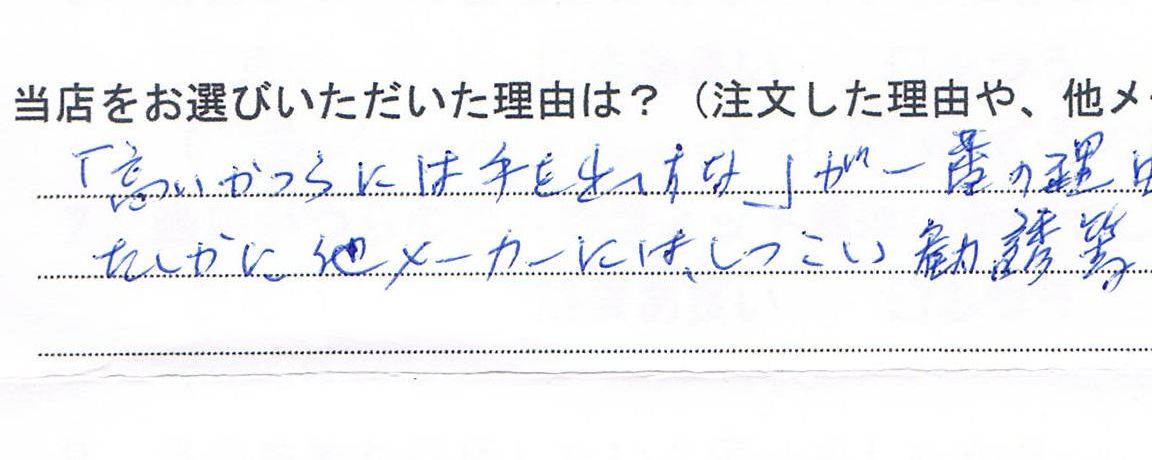 当店をお選びいただいた理由は？（注文した理由や、他メ
「高いかつらには手を出すな」が一番の理由
たしかに他メーカーには、しつこい勧誘等